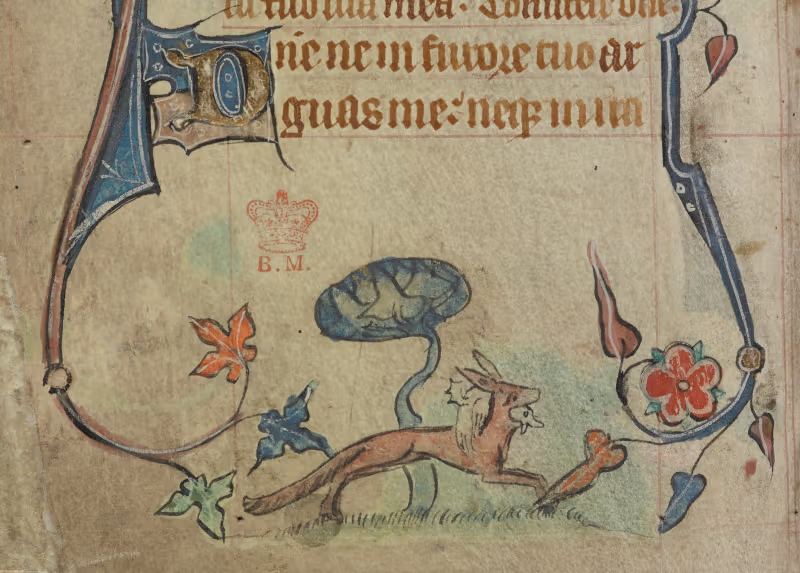 mea.
Dn̄e ne in furore tuo ar
guas me: neqꝫ in ira
B. M.